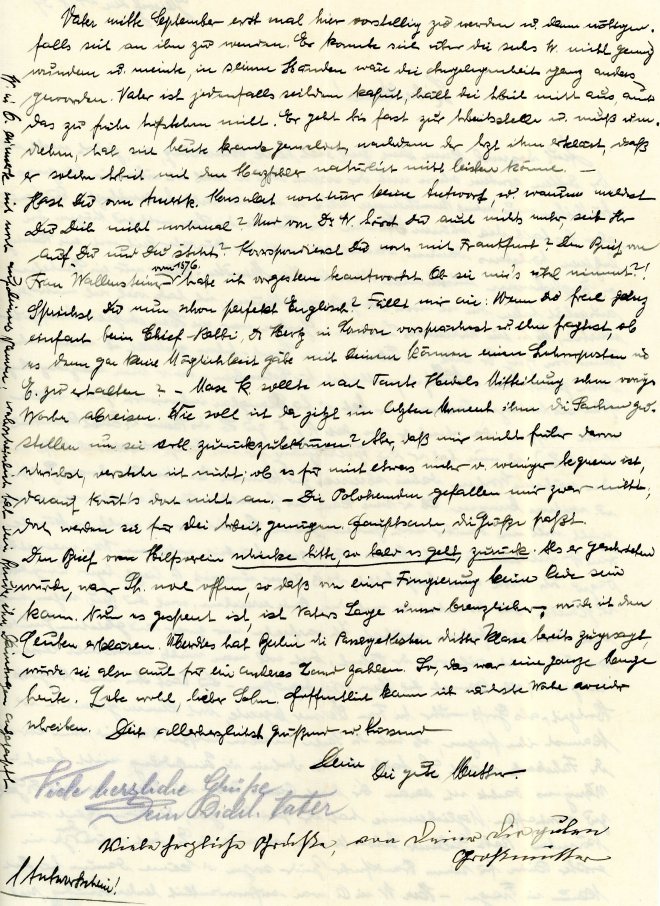 Vater Mitte September erst mal hier vorstellig zu werden u. dann nötigen-
falls sich an ihn zu wenden. Er konnte sich über die sechs W. nicht genug
wundern u. meinte, in seinen Händen wäre die Angelegenheit ganz anders
geworden. Vater ist jedenfalls seitdem kaput, hält die Arbeit nicht aus, auch
das zu frühe Aufstehen nicht. Er geht bis fast zur Arbeitsstelle u. muß um-
drehen, hat sich heute krank gemeldet, nachdem der Arzt ihm erklärt, daß
er solche Arbeit mit dem Herzfehler natürlich nicht leisten könne. —
Hast Du vom Amerik. Konsulat noch immer keine Antwort, u. warum meldest
Du Dich nicht nochmal? Und von Dr. W. hörst Du auch nichts mehr seit Ihr
auf Du und Du steht? Korrespondierst Du noch mit Frankfurt? Den Brief von
Frau Wallenstein vom 15/6. habe ich vorgestern beantwortet. Ob sie mir's übel nimmt?!
Sprichst Du nun schon perfekt Englisch? Fällt mir ein: Wenn Du
einfach beim Chief Rabbi, Dr Hertz in London vorsprächest u. ihn fragtest, ob
es denn gar keine Möglichkeit gäbe mit Deinem Können einen Lehrerposten in
E. zu erhalten? — Max K. sollte nach Tante Heidels Mitteilung schon vorige
Woche abreisen. Wie soll ich da jetzt im letzten Moment ihm die Sachen zu-
stellen um sie zurückzubekommen? Aber, daß mir nicht früher davon
schriebst, verstehe ich nicht; ob es für mich etwas mehr o. weniger bequem ist,
darauf kommt's doch nicht an. — Die Polohemden gefallen mir zwar nicht,
doch werden sie für die Arbeit genügen. Hauptsache, die Größe paßt.
Den Brief vom Hilfsverein schicke bitte, so bald es geht, zurück. Als er geschrieben
wurde, war Sh. noch offen, so daß von einer Fingierung keine Rede sein
kann. Nun es gesperrt ist, ist Vaters Lage umso brenzlicher, muß ich den
Leuten erklären. Überdies hat Berlin die Passagekosten dritter Klasse bereits zugesagt,
würde sie also auch für ein anderes Land zahlen. So, das war eine ganze Menge
heute. Lebe wohl, lieber Sohn. Hoffentlich kann ich nächste Woche wieder
schreiben. Dich allerherzlichst grüßend u. küssend
Deine Die gute Mutter
Viele herzliche Grüße
Dein Dichl. Vater
Viele herzliche Grüße, von Deiner Die guten
Großmutter
1 Antwortschein!